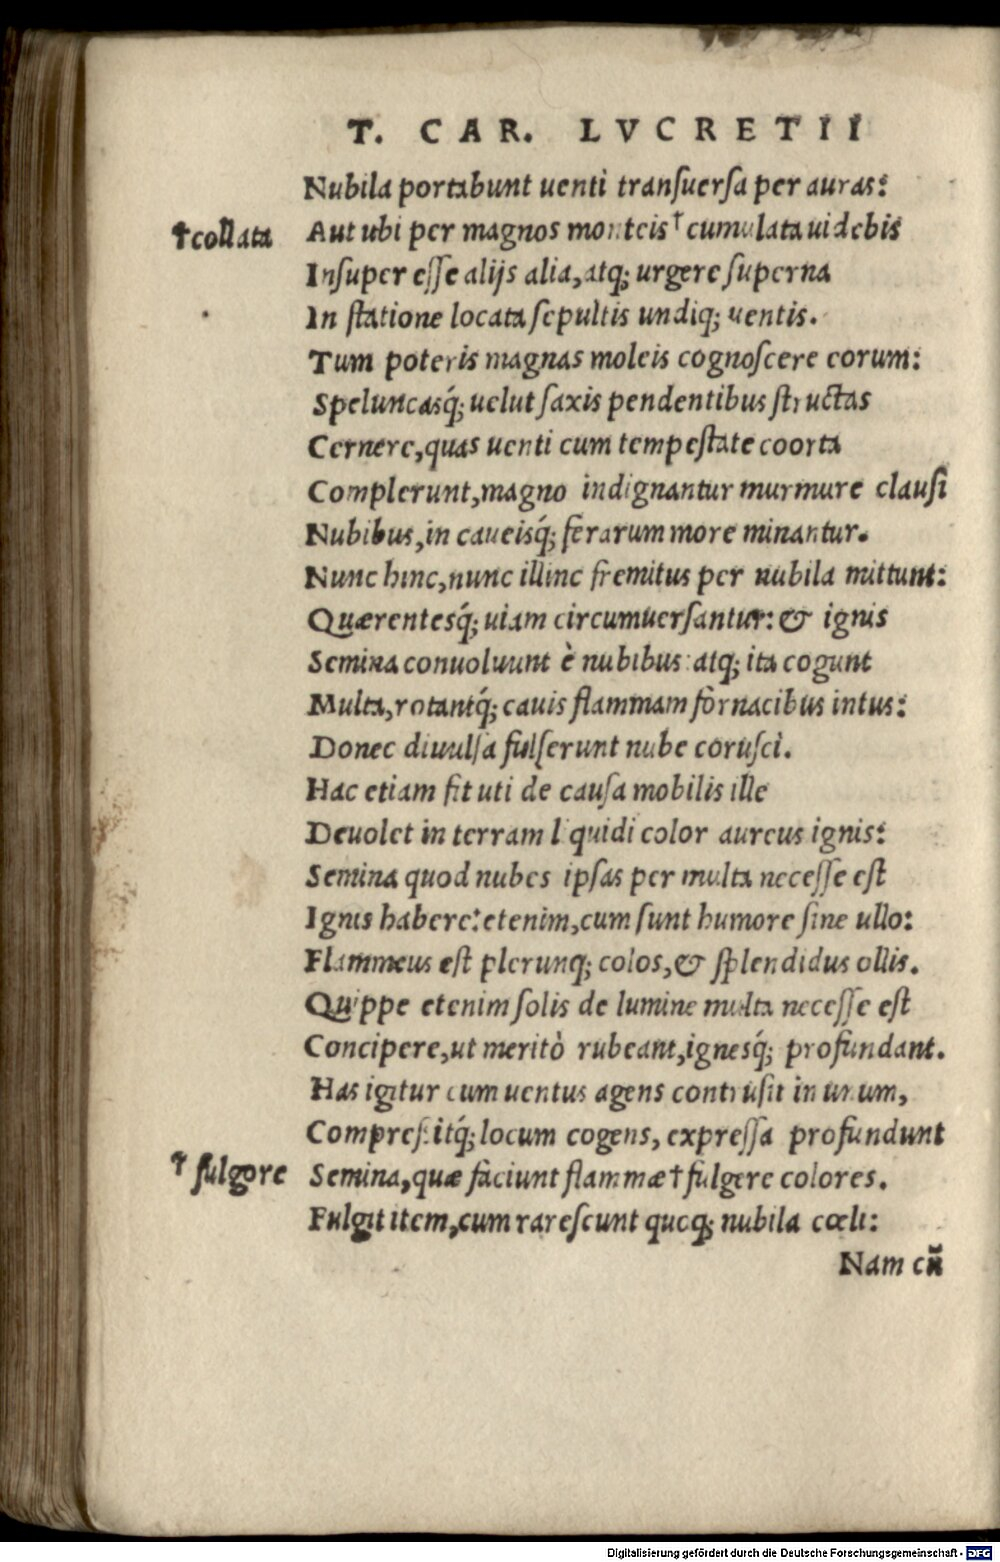 T. CAR. LVCRETII
Nubila portabunt uenti tranſuerſa per auras:
†collata Aut ubi per magnos monteis † cumulata uidebis
Inſuper eſſe alijs alia, atq; urgere ſuperna
In ſtatione locata ſepultis undiq; uentis.
Tum poteris magnas moleis cognoſcere eorum:
Speluncasq́; uelut ſaxis pendentibus ſtructas
Cernere, quas uenti cum tempeſtate coorta
Complerunt, magno indignantur murmure clauſi
Nubibus, in caueisq́; ferarum more minantur.
Nunc hinc, nunc illinc fremitus per nubila mittunt:
Quærentesq́; uiam circumuerſantur: & ignis
Semina conuoluunt è nubibus: atq; ita cogunt
Multa, rotantq́; cauis flammam fornacibus intus:
Donec diuulſa fulſerunt nube coruſci.
Hac etiam fit uti de cauſa mobilis ille
Deuolet in terram liquidi color aureus ignis:
Semina quod nubes ipſas per multa neceſſe eſt
Ignis habere: etenim, cum ſunt humore ſine ullo:
Flammeus eſt plerunq; colos, & ſplendidus ollis.
Quippe etenim ſolis de lumine multa neceſſe eſt
Concipere, ut meritò rubeant, ignesq́; profundant.
Has igitur cum uentus agens contruſit in unum,
Compreſsitq́; locum cogens, expreſſa profundunt
† fulgore Semina, quæ faciunt flammæ † fulgere colores.
Fulgit item, cum rareſcunt quoq; nubila cœli:
Nam cū
Digitalisierung gefördert durch die Deutsche Forschungsgemeinschaft - DFG